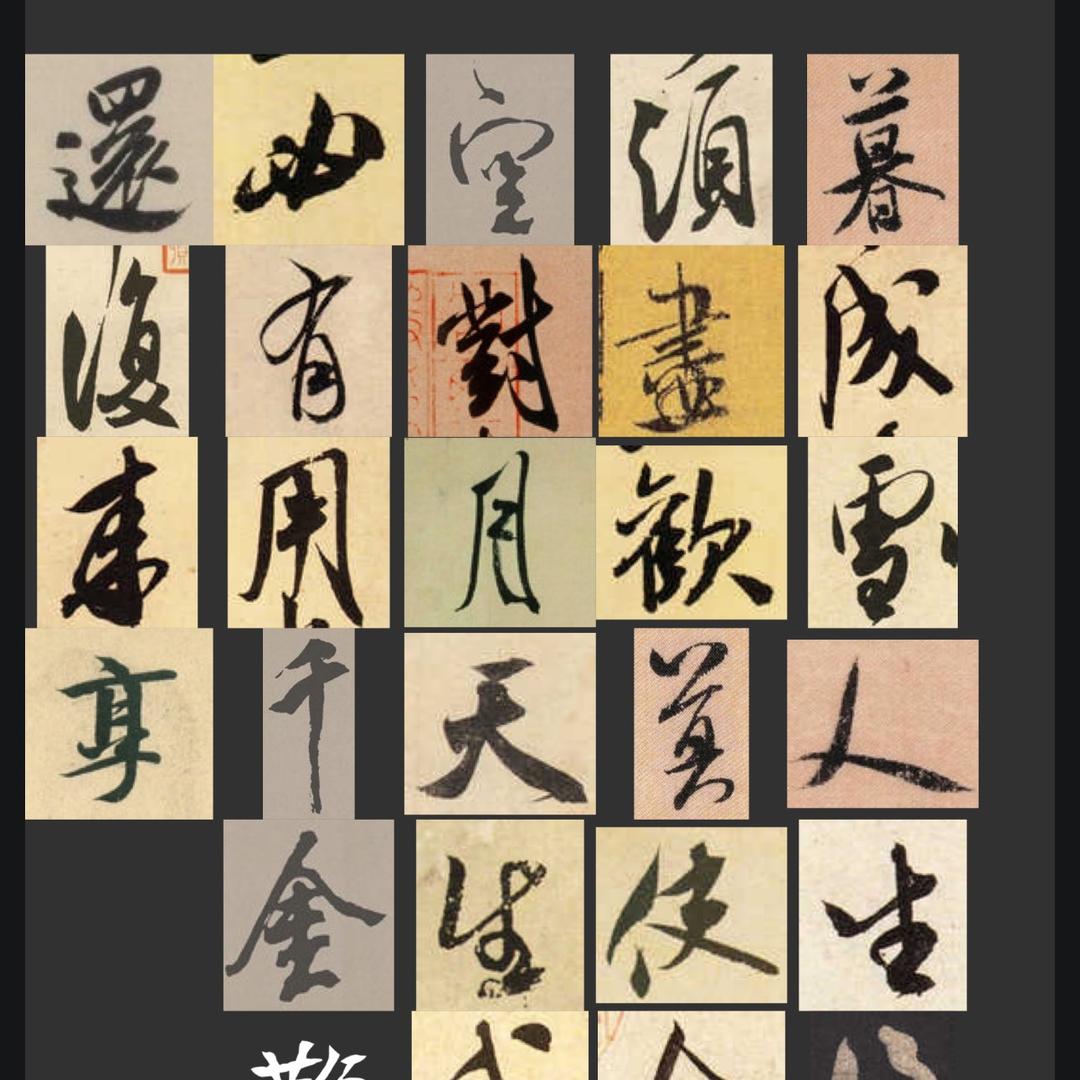 暮成雪人生
須盡歡莫使
空對月天生
必有用千金
還復來享